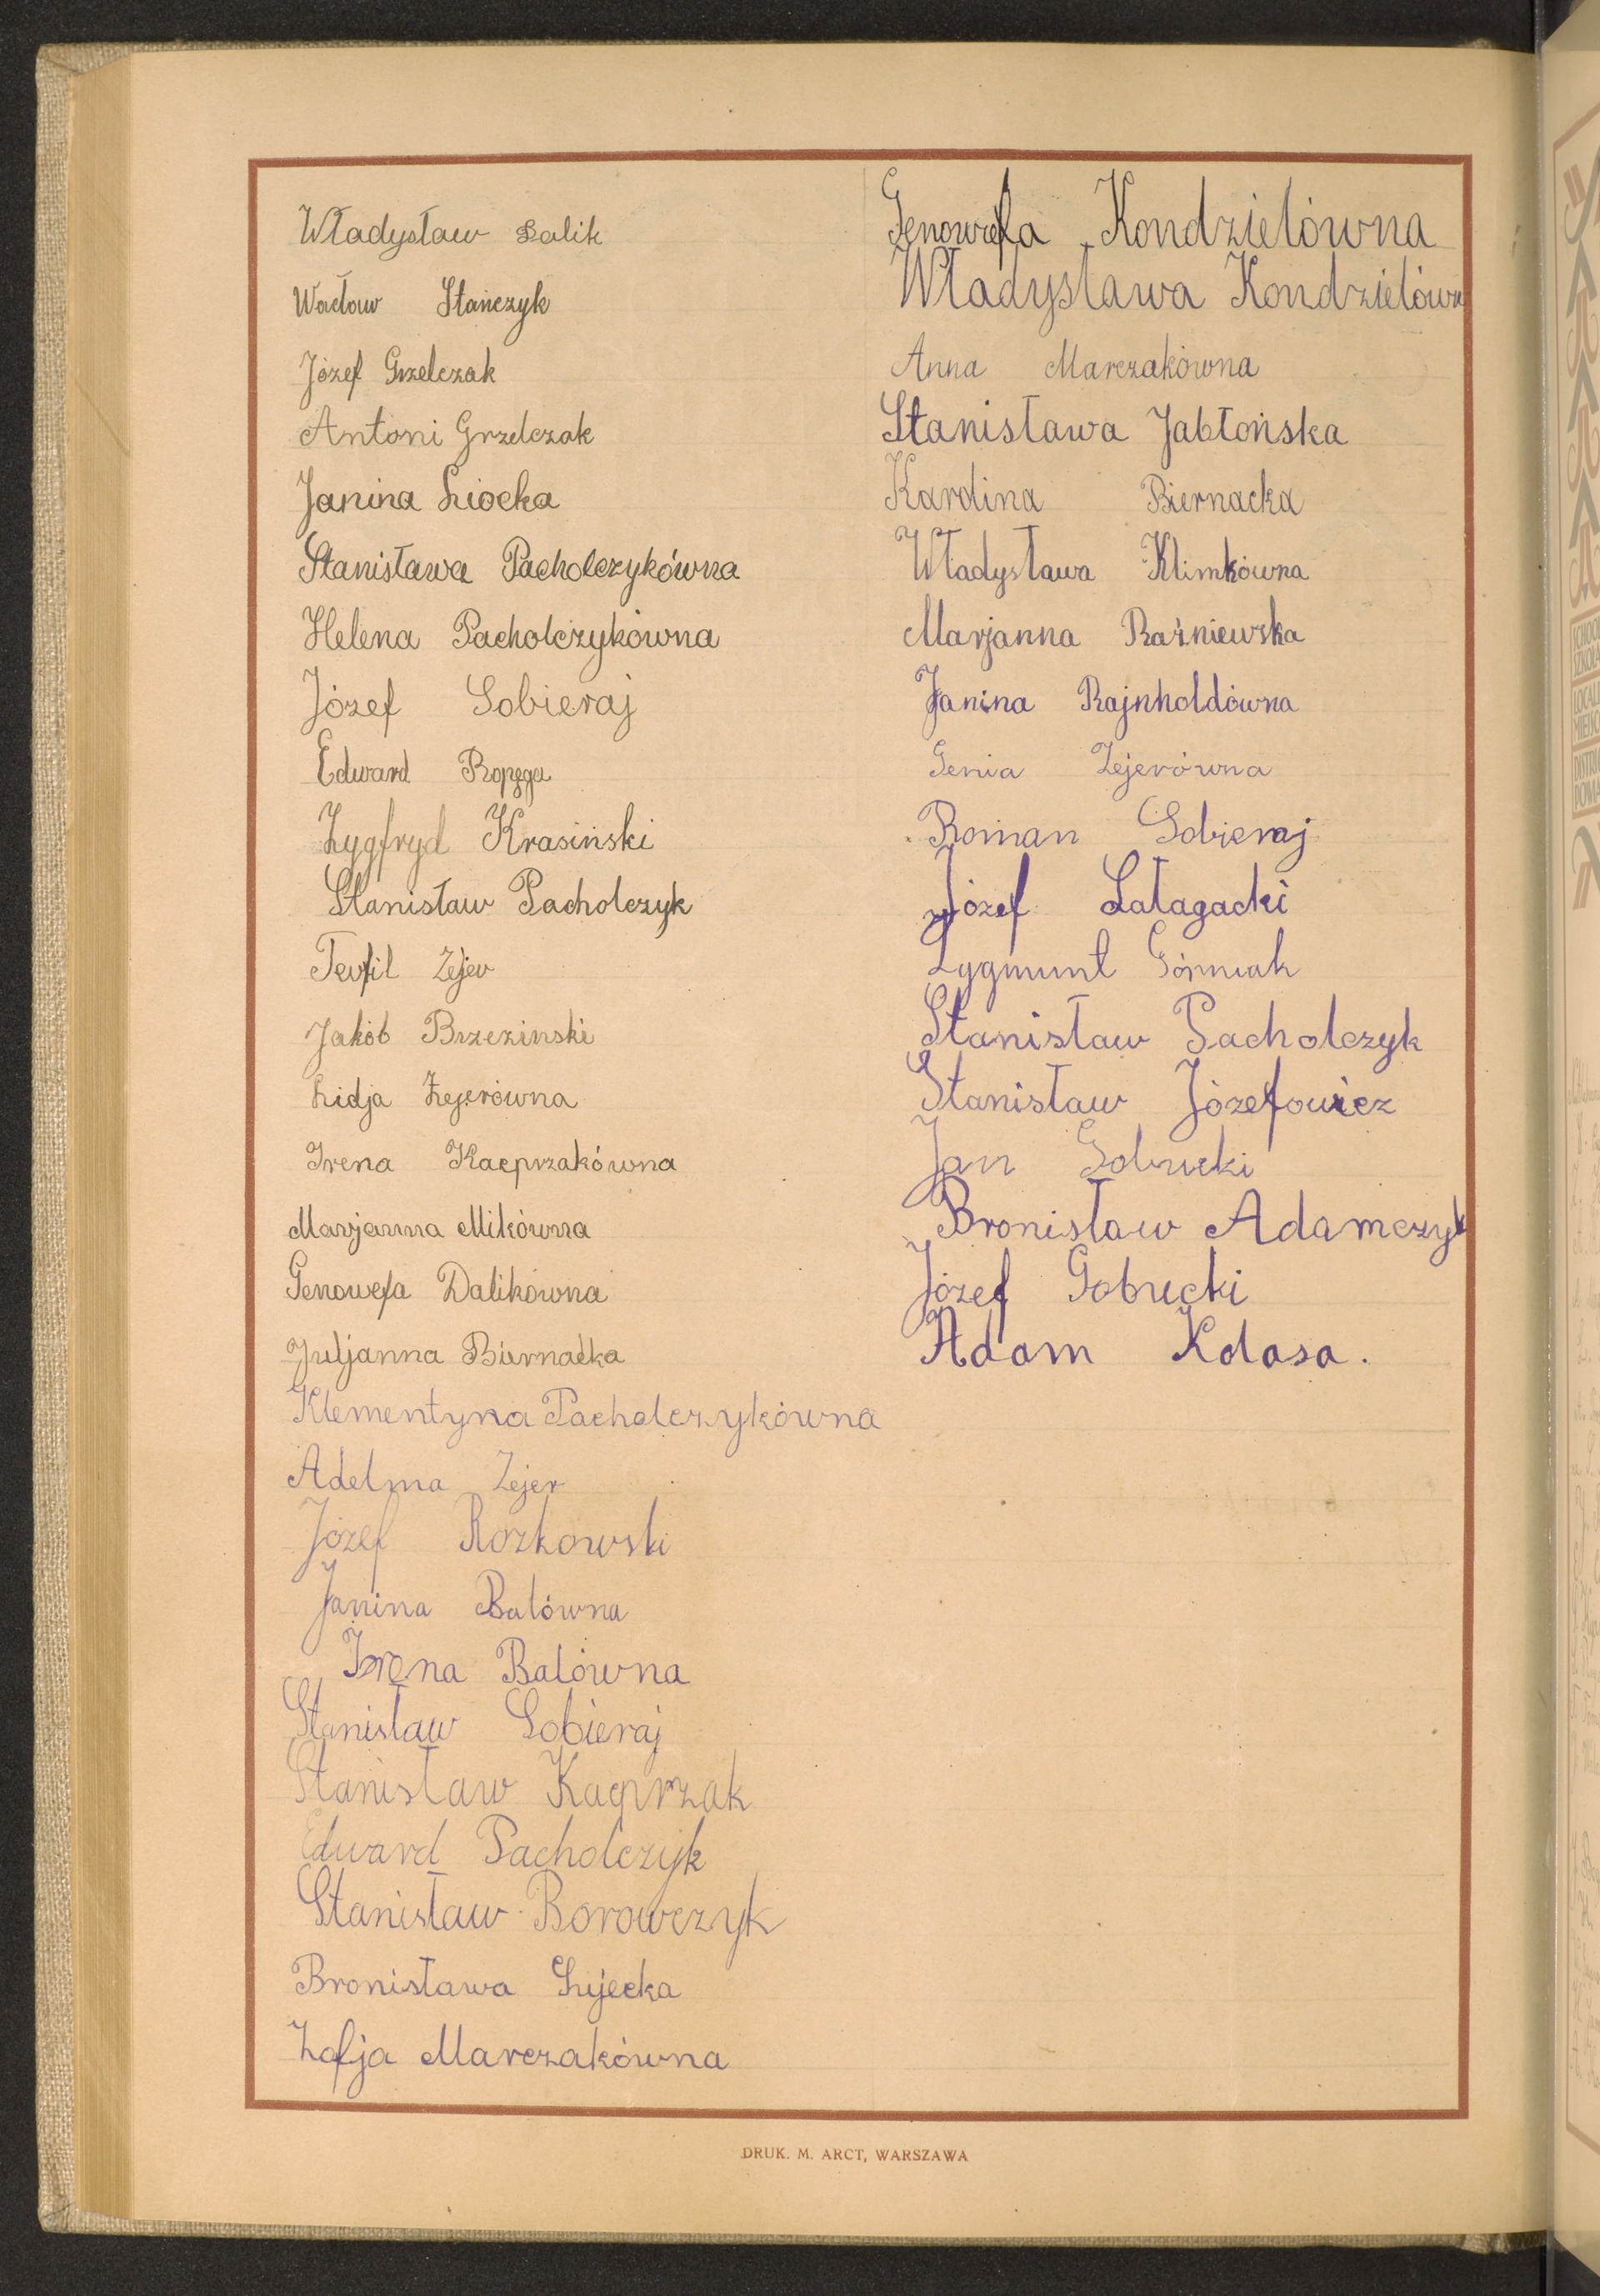 Władysław Dalik
Wacław Stańczyk
Józef Grzelczak
Antoni Grzelczak
Janina Liocka
Stanisława Pacholczykówna
Helena Pacholczykówna
Józef Sobieraj
Edward Ropęga
Zygfryd Krasiński
Stanisław Pacholczyk
Teofil Zejer
Jakób Brzezinski
Lidja Zejerówna
Irena Kacprzakówna
Marjanna Mikówna
Genowefa Dalikówna
Juljanna Biernacka
Klementyna Pacholczykówna
Adelma Zejer
Józef Rozkowski
Janina Balówna
Irena Balówna
Stanisław Sobieraj
Stanisław Kacprzak
Edward Pacholczyk
Stanisław Borowczyk
Bronisława Lijecka
Zofja Marczakówna
Genowefa Kondzielówna
Władysława Kondzielówn
Anna Marczakówna
Stanisława Jabłońska
Karolina Biernacka
Władysława Klimkówna
Marjanna Raźniewska
Janina Rajnholdówna
Genia Zejerówna
Roman Sobieraj
Józef Łatagacki
Zygmunt Górniak
Stanisław Pacholczyk
Stanisław Józefowicz
Jan Gobucki
Bronisław Adamczyk
Józef Gobucki
Adam Kolasa.
DRUK. M. ARCT, WARSZAWA